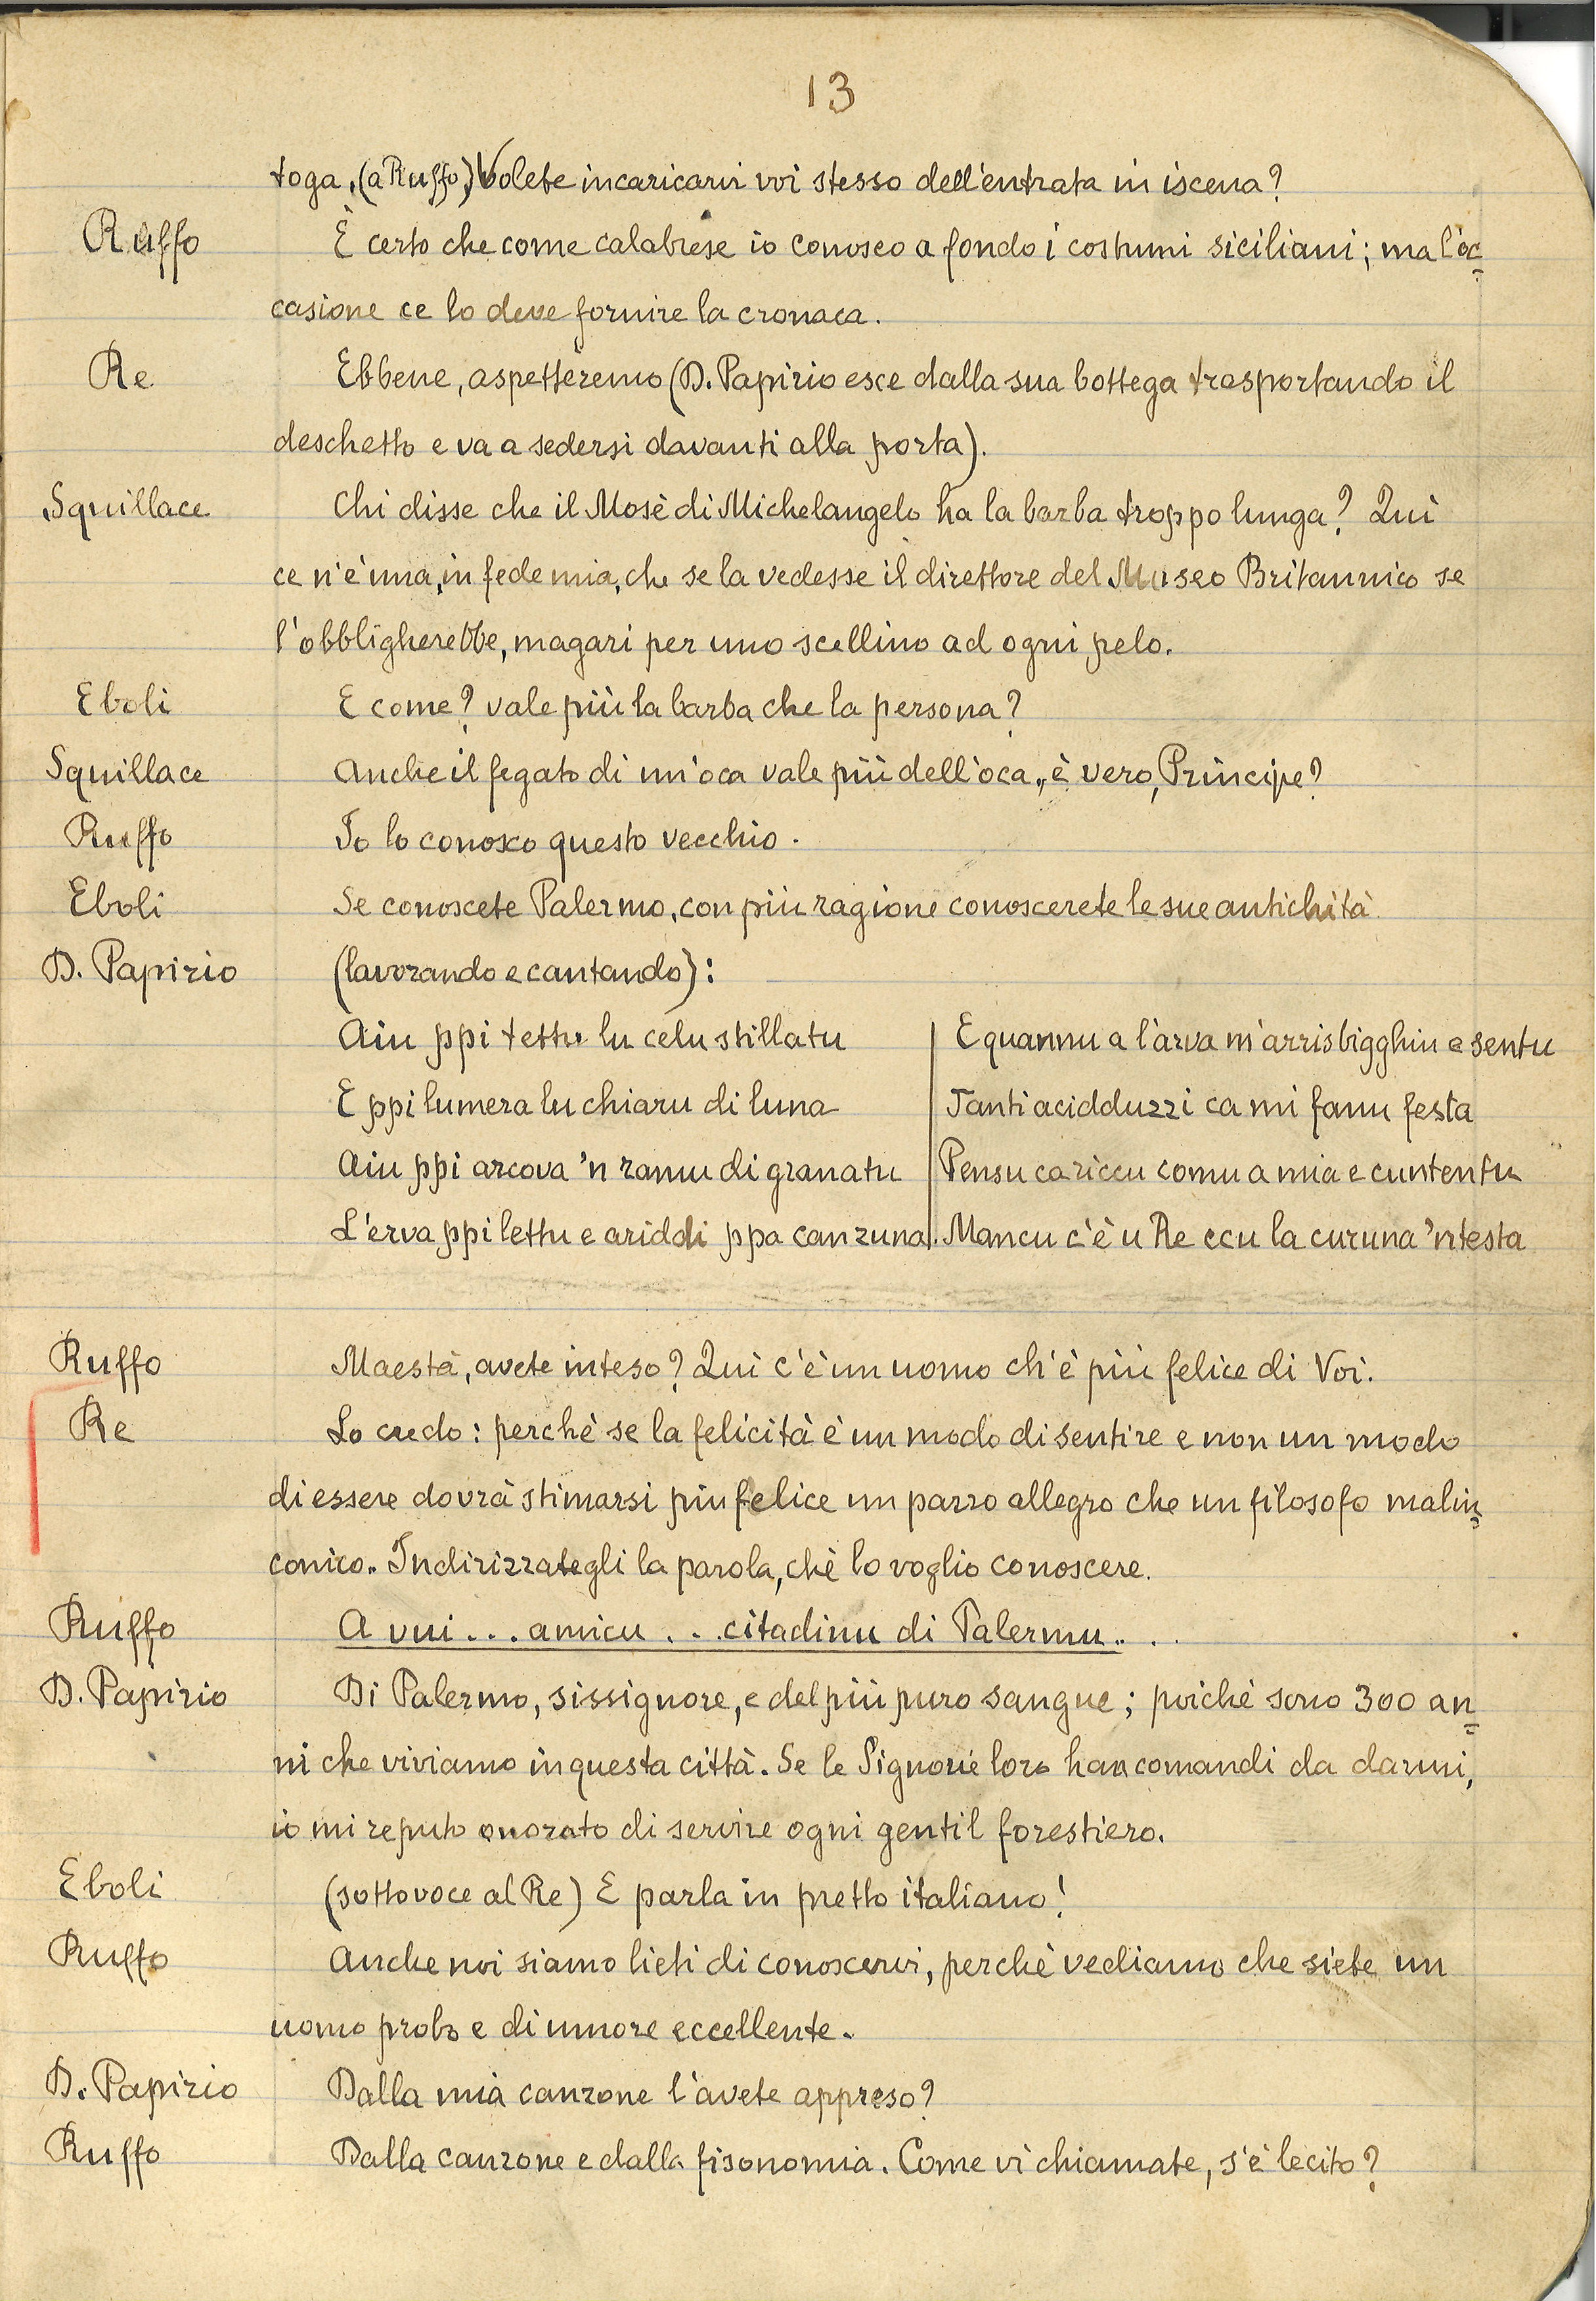 13
toga, (a Ruffo,) Volete incaricarvi voi stesso dell'entrata in iscena?
Ruffo È certo che come calabrese io conosco a fondo i costumi siciliani; ma l'oc=
casione ce lo deve fornire la cronaca.
Re Ebbene, aspetteremo (D. Papirio esce dalla sua bottega trasportando il
deschetto e va a sedersi davanti alla porta).
Squillace Chi disse che il Mosè di Michelangelo ha la barba troppo lunga? Quì
ce n'è una, in fede mia, che se la vedesse il direttore del Museo Britannico se
l'obbligherebbe, magari per uno scellino ad ogni pelo.
Eboli E come? vale più la barba che la persona?
Squillace Anche il fegato di un'oca vale più dell'oca, è vero, Principe?
Ruffo Io lo conosco questo vecchio.
Eboli Se conoscete Palermo, con più ragione conoscerete le sue antichità
D. Papirio (lavorando e cantando):
Aiu ppi tettu lu celu stillatu
E ppi lumera lu chiaru di luna
Aiu ppi arcova 'n ramu di granatu
L'erva ppi lettu e ariddi ppa canzuna.
E quannu a l'arva m'arrisbigghiu e sentu
Tanti acidduzzi ca mi fanu festa
Pensu ca riccu comu a mia e cuntentu
Mancu c'è u Re ccu la curuna 'ntesta
Ruffo Maestà, avete inteso? Quì c'è un uomo ch'è più felice di Voi.
Re Lo credo: perchè se la felicità è un modo di sentire e non un modo
di essere dovrà stimarsi più felice un pazzo allegro che un filosofo malin=
conico. Indirizzategli la parola, chè lo voglio conoscere.
Ruffo A vui... amicu... citadinu di Palermu...
D. Papirio Di Palermo, sissignore, e del più puro sangue; poichè sono 300 an=
ni che viviamo in questa città. Se le Signorie loro han comandi da darmi,
io mi reputo onorato di servire ogni gentil forestiero.
Eboli (sottovoce al Re) E parla in pretto italiano!
Ruffo Anche noi siamo lieti di conoscervi, perchè vediamo che siete un
uomo probo e di umore eccellente.
D. Papirio Dalla mia canzone l'avete appreso?
Ruffo Dalla canzone e dalla fisonomia. Come vi chiamate, s'è lecito?